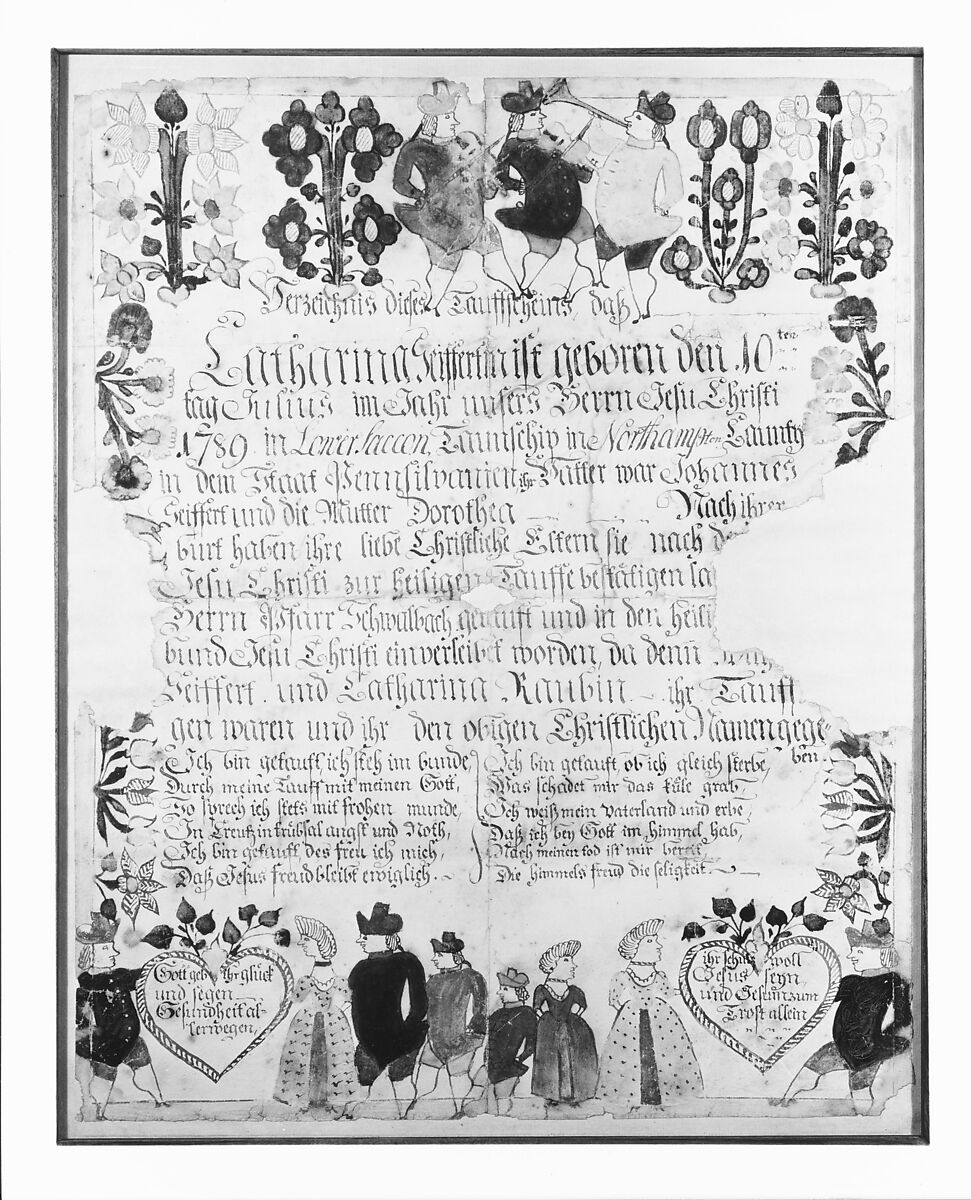 Verzeichnis dieses Tauffscheins, daß
Catharina Seiffertin ist geboren den 10ten
tag Julius im Jahr unsers Herrn Jesu Christi
1789 in Lower saccon, Taunschip in Northampton Caunty
in dem Staat Pennsilvanien, ihr Vatter war Johannes
Seiffert und die Mutter Dorothea Nach ihrer
burt haben ihre liebe Christliche Eltern sie nach
Jesu Christi zur heiligen Tauffe bestätigen
Herrn Pfarr Schwalbach getauft und in den
bund Jesu Christi einverleibet worden, da denn
Seiffert. und Catharina Raubin ihr
gen waren und ihr den obigen Christlichen Namen gege-
ben.
Ich bin getauft ich steh im bunde,
Durch meine Tauff mit meinen Gott,
So sprech ich stets mit frohen munde,
In Creutz in trübsal angst und Noth,
Ich bin getauft, des freu ich mich,
Daß Jesus freud bleibt erwiglich.
Ich bin getauft, ob ich gleich sterbe,
Was schadet mir das küle grab,
Ich weiß mein vaterland und erbe,
Daß ich bey Gott im himmel hab,
Nach meinen tod ist mir bereit
Die himmels freud die seligkeit.
Gott geb ihr glück
und segen
Gesundheit al-
lerwegen,
ihr schutz woll
Jesus seyn,
und Gesund zum
Trost allein